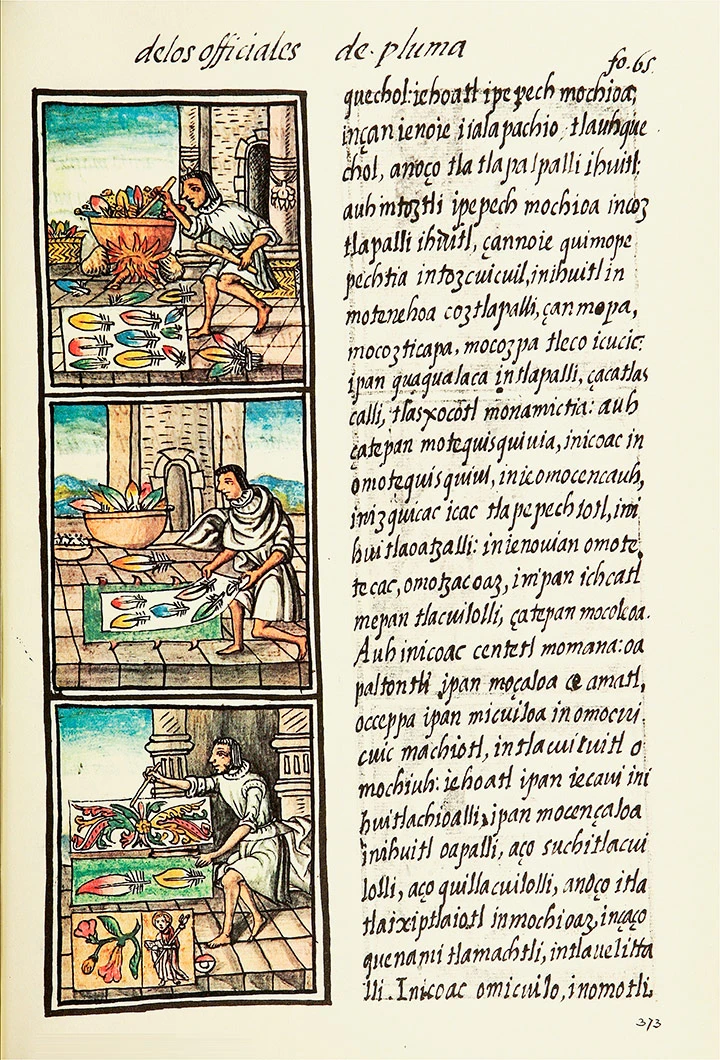 delos officiales de pluma
fo. 65
quechol: iehoatl ipepech mochioa,
inçan ienoie iialapachio tlauhque
chol, anoço tla tlapalpalli ihuitl:
auh intoztli ipepech mochioa incoz
tlapalli ihuitl, çannoie quimope
pechtia intozcuicuil, inihuitl in
motenehoa coztlapalli, çan mopa,
mocozticapa, mocozpa tleco icucic:
ipan quaqualaca intlapalli, çacatlas
calli, tlasxocotl monamictia: auh
çatepan motequisquiuia, inicoac in
omotequisquiui, inicomocencauh,
inizquicac icac tlapepechiotl, ini
huitlaoatzalli: inienouian omote
tecac, omotzacoaz, inipan ichcatl
mepan tlacuilolli, çatepan mocoleoa.
Auh inicoac centetl momana: oa
paltontli ipan moçaloa ce amatl,
occeppa ipan micuiloa in omocui
cuic machiotl, intlacuicuitl o
mochiuh: iehoatl ipan iecaui ini
huitlachioalli, ipan mocençaloa
inihuitl oapalli, aço suchitlacui
lolli, aço quillacuilolli, anoço itla
tlaixiptlaiotl inmochioaz, inçaço
quenami tlamachtli, intlauelitta
lli. Inicoac omicuilo, inomotli
373